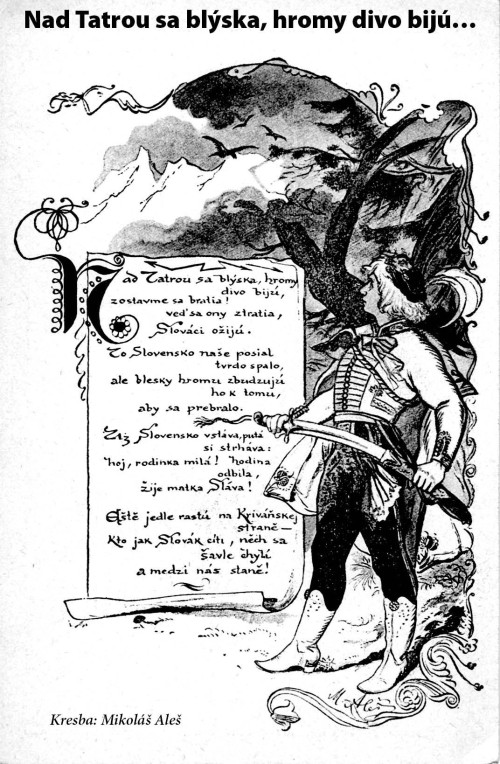 Nad Tatrou sa blýska, hromy divo bijú…
Nad Tatrou sa blýska, hromy
divo bijú,
zostavme sa bratia!
veď sa ony ztratia,
Slováci ožijú.
To Slovensko naše posiaľ
tvrdo spalo,
ale blesky hromu zbudzujú
ho k tomu,
aby sa prebralo.
Už Slovensko vstáva, putá
si strháva:
hoj, rodinka milá! hodina
odbila,
žije matka Sláva!
Eště jedle rastú na Kriváňskej
straně—
Kto jak Slovák cíti, něch sa
šavle chytí
a medzi nás staně!
M. Aleš
Kresba: Mikoláš Aleš